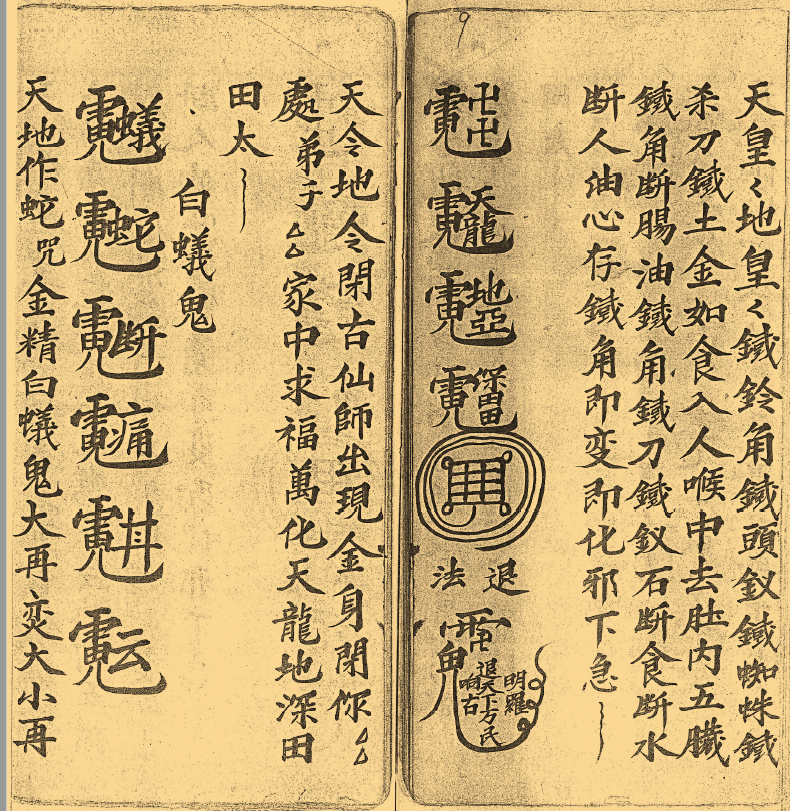 9
天皇〻地皇〻鐵鈴角鐵頭釵鐵蜘蛛鐵
杀刀鐵土金如食入人喉中去肚内五臟
鐵角断腸油鐵角鐵刀鐵釵石断食断水
断人油心存鐵角即变即化邪下急
天龍
地亞
退法
明羅
退天下方民
响古
天令地令閉古仙師出現金身閉你厶厶
處弟子厶厶家中求福萬化天龍地深田
田太
白蟻鬼
蟻
蛇
断
痛
井
云
天地作蛇咒金精白蟻鬼大再变大小再